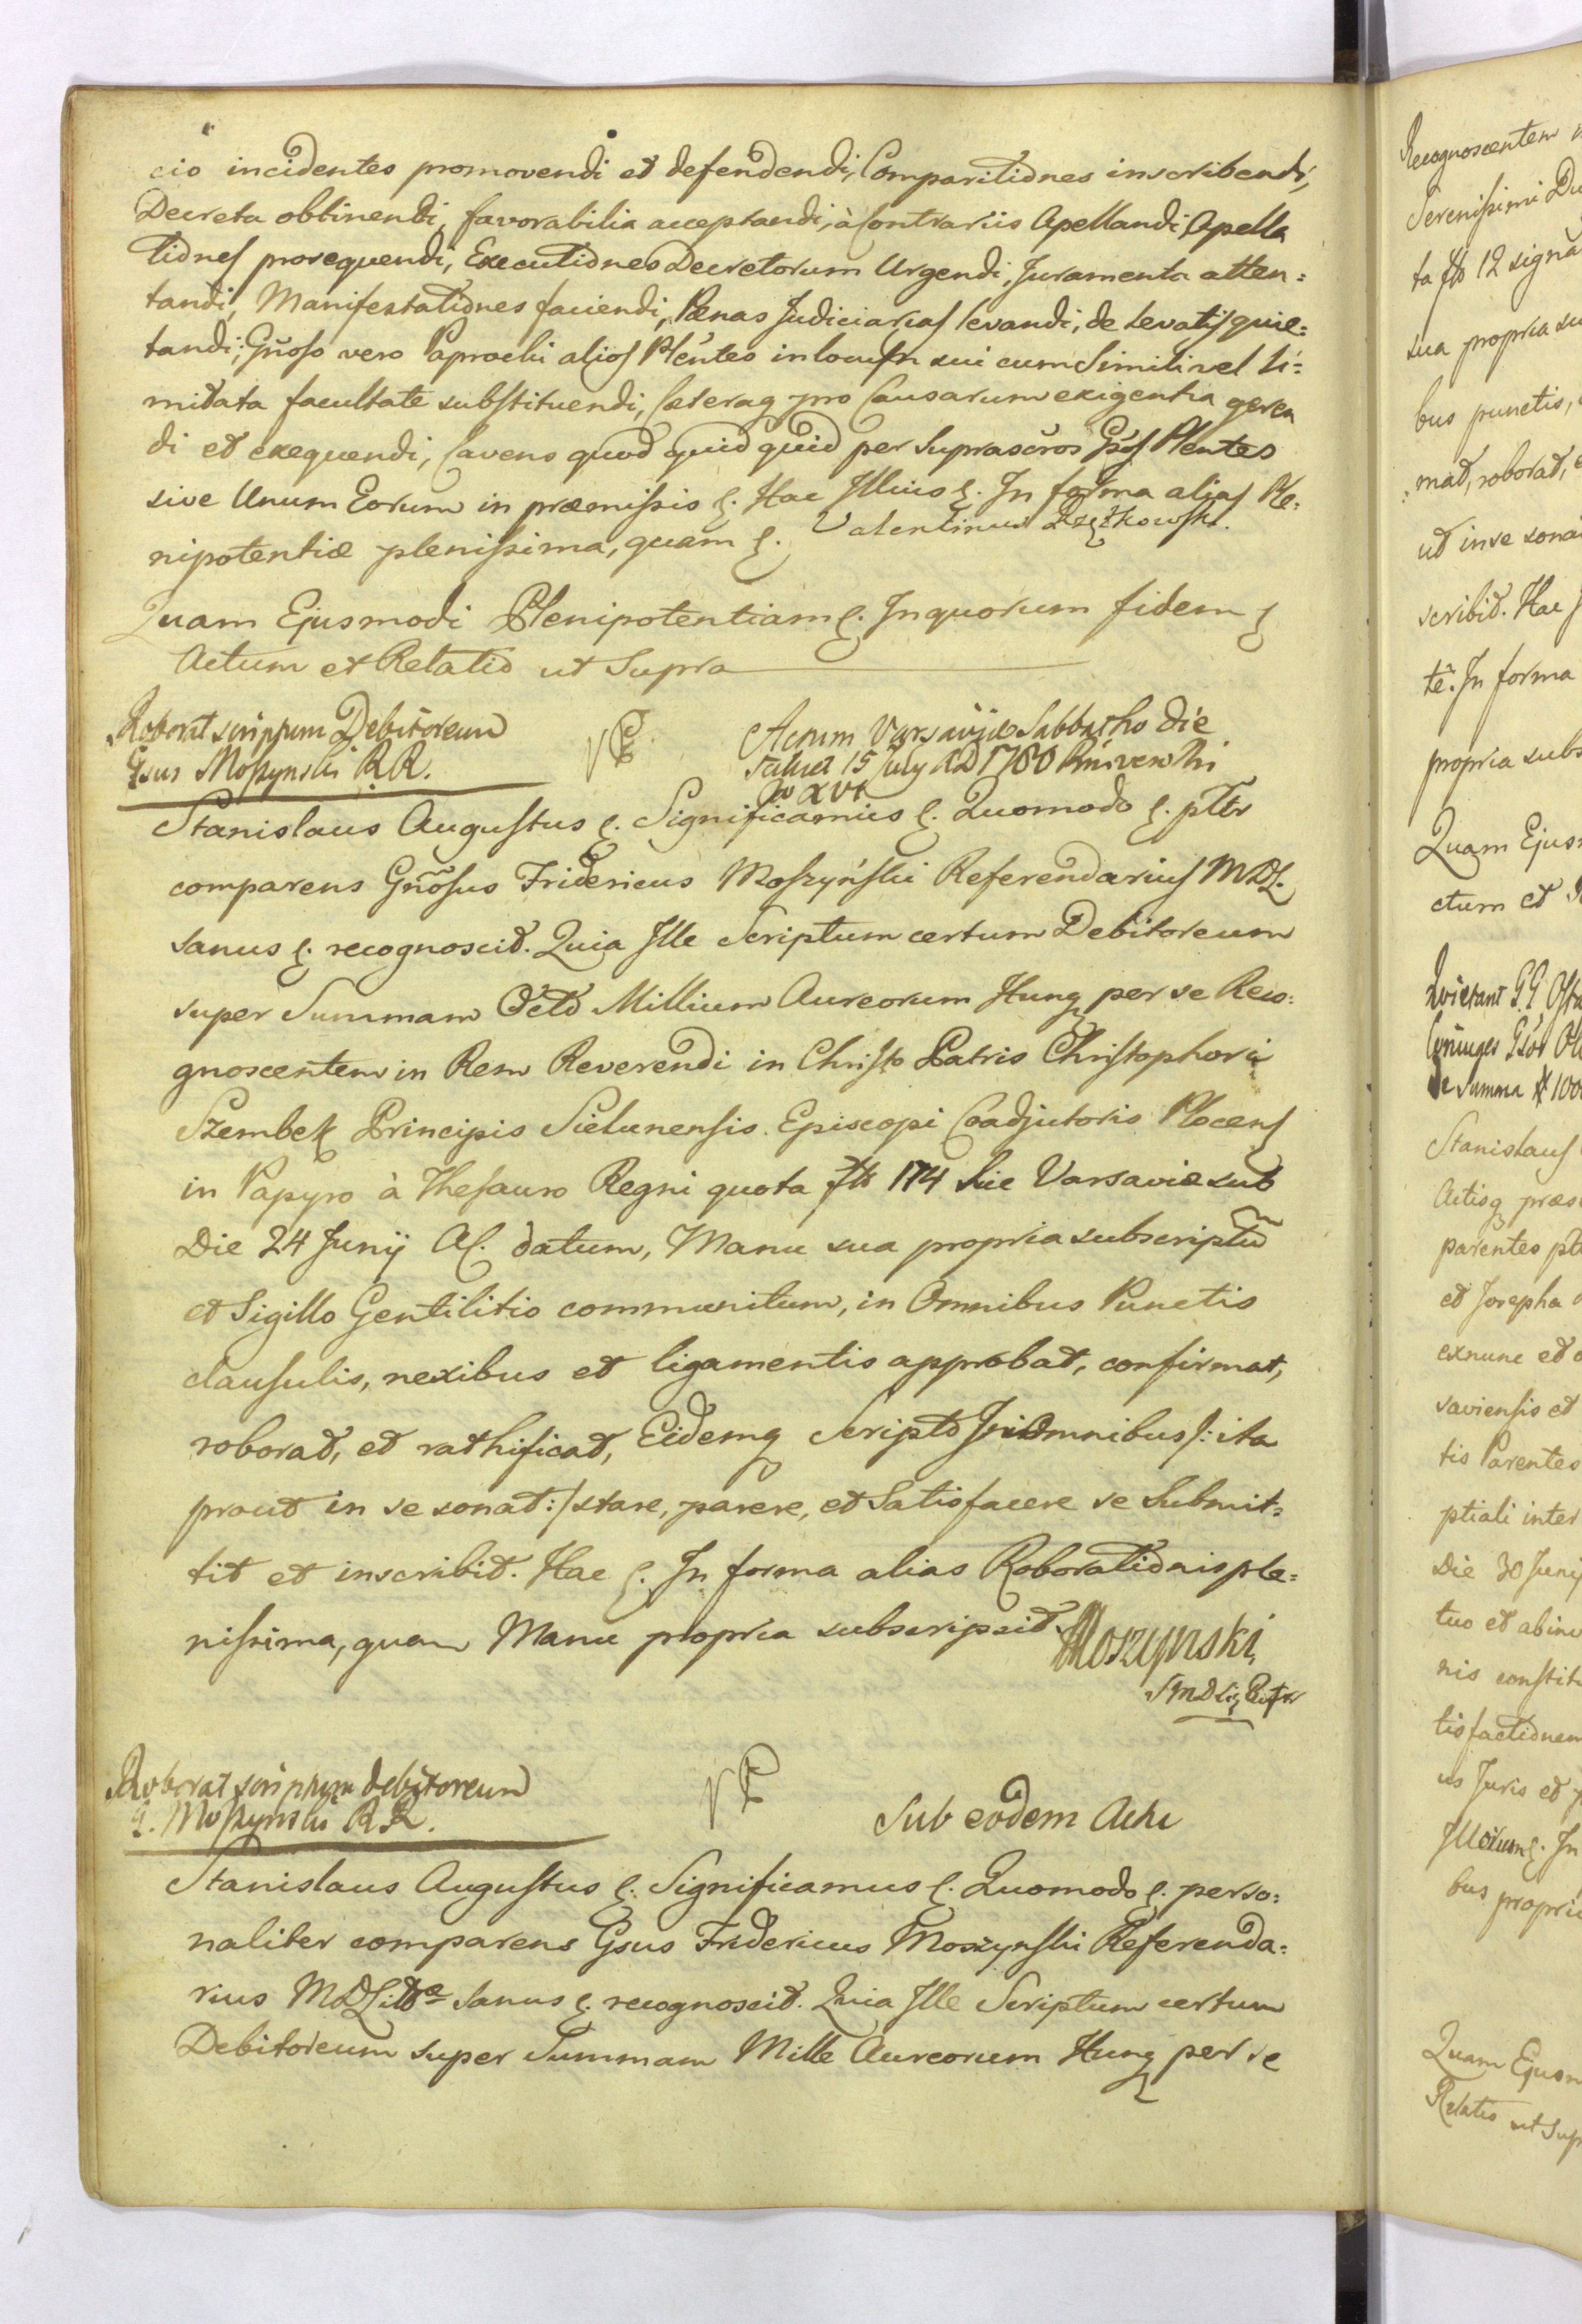 cio incidentes promovendi et defendendi, Comparitiones inscribendi,
Decreta obtinendi, favorabilia acceptandi, à Contrariis Apellandi Apella
tiones prosequendi, Executiones Decretorum Urgendi, Juramenta atten=
tandi, Manifestationes faciendi, Pænas Judiciarias levandi, de levatis quie=
tandi; Gñoso vero Paprocki alios Plẽntes in locum sui cum Simili vel li=
mitata facultate substituendi, Cæteraq pro Causarum exigentia geren
di et exequendi, Cavens quod quid quid per Suprascros Gsos Plentes
sive Unum Eorum in præmissis ę. Hac Illius ę. In forma alias Ple=
nipotentiæ plenissima, quam ę. Valentinus
Quam Ejusmodi Plenipotentiam ę. In quorum fidem ę
Actum et Relatio ut Supra
Roborat scriptum Debitoreum
Gsus Moszynski R.R.
Actum Varsaviæ Sabbatho die
15 July AD 1780
Stanislaus Augustus ę. Significamus ę. Quomodo ę. pltr
comparens Gñosus Fridericus Moszyński Referendarius MDL.
sanus ę. recognoscit. Quia Ille Scriptum certum Debitoreum
super Summam Octo Millium Aureorum Hung per se Reco=
gnoscentem in Rem Reverendi in Christo Patris Christophori
Szembek Principis Sielunensis Episcopi Coadjutoris Plocens
in Papyro à Thesauro Regni quota fl 174 hic Varsaviæ sub
Die 24 Junij AC. datum, Manu sua propria subscriptũ
et Sigillo Gentilitio communitum, in Omnibus Punctis
clausulis, nexibus et ligamentis approbat, confirmat,
roborat, et rathificat, Eidemq Scripto In Omnibus /: ita
prout in se sonat :/ stare, parere, et Satisfacere se Submit=
tit et inscribit. Hac ę. In forma alias Roborationis ple=
nissima, quam Manu propria subscripsit. Moszynski
Roborat scriptum debitoreum
G. Moszynski R.R.
Sub eodem Actu
Stanislaus Augustus ę. Significamus ę. Quomodo ę. perso=
naliter comparens Gsus Fridericus Moszynski Referenda=
rius MDLitt sanus ę. recognoscit. Quia Ille Scriptum certum
Debitoreum super Summam Mille Aureorum Hung per se
Recognoscentem
Serenissimi Du
ta fl 12 signa
sua propria su
bus punctis,
mat, roborat, e
ut in se sona
scribit. Hac
te. In forma
propria subs
Quam Ejus
ctum et R
Quietant G.G
de Summa # 100
Stanislaus
Actisq præs
parentes
et Josepha
exnunc et
saviensis et
tis Parentes
ptiali inter
Die 30 Junij
tuo et abin
nis constit
tisfactionem
us Juris et
Illorum ę. In
bus propri
Quam Ejusm
Relatio ut Sup